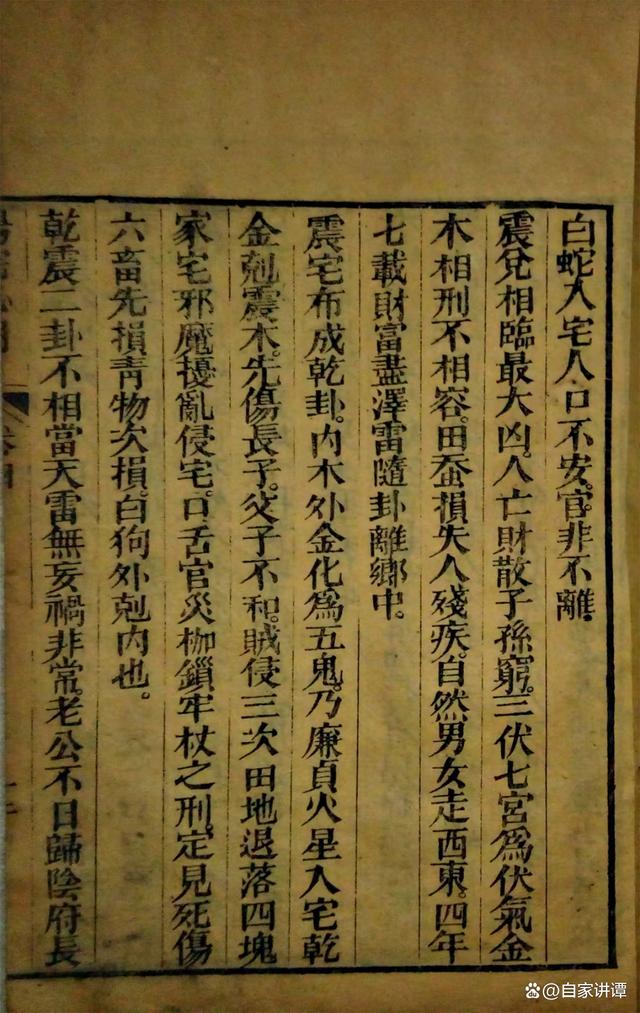 白蛇入宅人口不安。官非不離。
震兌相臨最大凶。人亡財散子孫窮。三伏七宮爲伏氣金
木相刑不相容。田蚕損失人殘疾。自然男女走西東。四年
七載財富盡澤雷隨卦離鄉中。
震宅布成乾卦。内木外金化爲五鬼。乃廉貞火星入宅乾
金剋震木。先傷長子。父子不和。賊侵三次田地退落四塊
家宅邪魔擾亂侵宅。口舌官災枷鎖牢杖之刑。定見死傷
六畜先損青物次損。白狗外剋内也。
乾震二卦不相當天雷無妄禍非常。老公不日歸陰府長
卷四
@自家讲谭